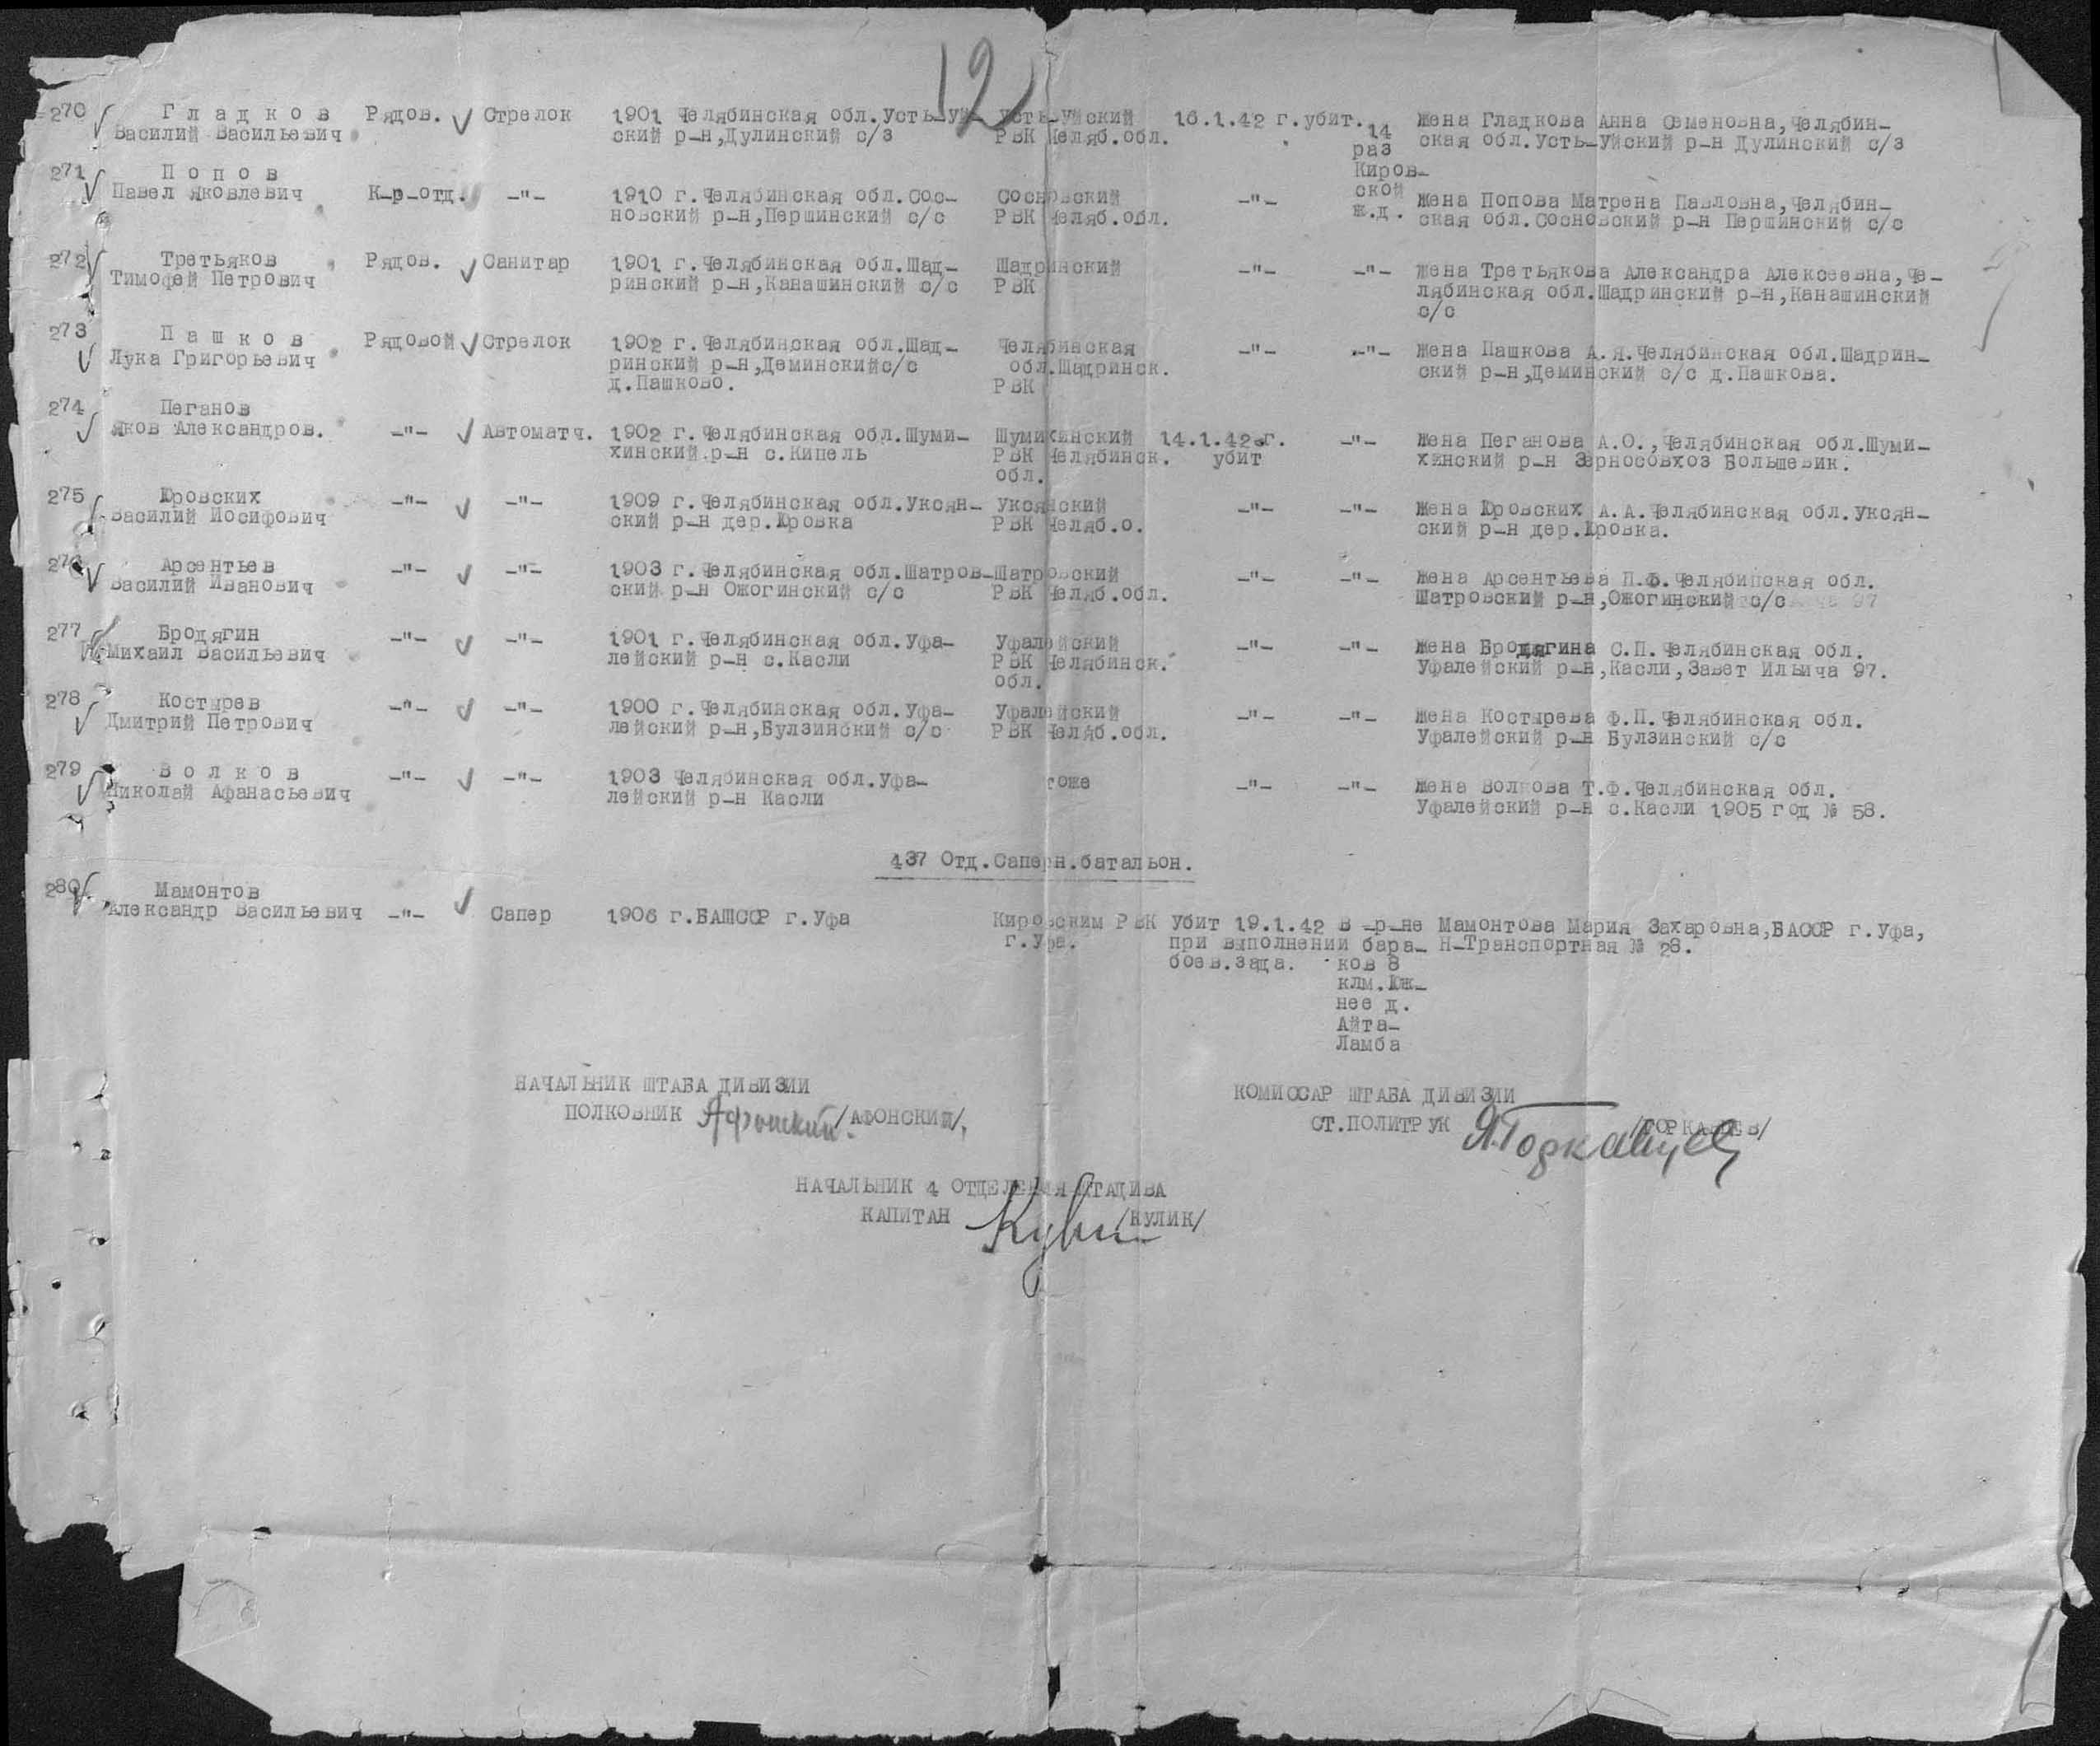 12
270 Гладков Рядов. Стрелок 1901 Челябинская обл.Усть-Уй- Усть-Уйский 16.1.42 г.убит. 14 Жена Гладкова Анна Семеновна,Челябин-
Василий Васильевич ский р-н,Дулинский с/з РВК Челяб.обл. раз ская обл.Усть-Уйский р-н Дулинский с/з
271 Попов Киров-
Павел Яковлевич К-р-отд. -"- 1910 г.Челябинская обл.Сос- Сосновский -"- ской Жена Попова Матрена Павловна,Челябин-
новский р-н,Першинский с/с РВК Челяб.обл. ж.д. ская обл.Сосновский р-н Першинский с/с
272 Третьяков Рядов. Санитар 1901 г.Челябинская обл.Шад- Шадринский -"- -"- Жена Третьякова Александра Алексеевна,Че-
Тимофей Петрович ринский р-н,Канашинский с/с РВК лябинская обл.Шадринский р-н,Канашинский
с/с
273 Пашков Рядовой Стрелок 1902 г.Челябинская обл.Шад- Челябинская -"- -"- Жена Пашкова А.Я.Челябинская обл.Шадрин-
Лука Григорьевич ринский р-н,Деминскийс/с обл.Шадринск. ский р-н,Деминский с/с д.Пашкова.
д.Пашково. РВК
274 Пеганов
Яков Александров. -"- Автоматч. 1902 г.Челябинская обл.Шуми- Шумихинский 14.1.42 г. -"- Жена Пеганова А.О.,Челябинская обл.Шуми-
хинский р-н с.Кипель РВК Челябинск. убит хинский р-н Зерносовхоз Большевик.
обл.
275 Юровских -"- -"- 1909 г.Челябинская обл.Уксян- Уксянский -"- -"- Жена Юровских А.А.Челябинская обл.Уксян-
Василий Иосифович ский р-н дер.Юровка РВК Челяб.о. ский р-н дер.Юровка.
276 Арсентьев -"- -"- 1903 г.Челябинская обл.Шатров-Шатровский -"- -"- Жена Арсентьева П.Ф.Челябинская обл.
Василий Иванович ский р-н Ожогинский с/с РВК Челяб.обл. Шатровский р-н,Ожогинский с/с
277 Бродягин -"- -"- 1901 г.Челябинская обл.Уфа- Уфалейский -"- -"- Жена Бродягина С.П.Челябинская обл.
Михаил Васильевич лейский р-н с.Касли РВК Челябинск. Уфалейский р-н,Касли,Завет Ильича 97.
обл.
278 Костырев -"- -"- 1900 г.Челябинская обл.Уфа- Уфалейский -"- -"- Жена Костырева Ф.П.Челябинская обл.
Дмитрий Петрович лейский р-н,Булзинский с/с РВК Челяб.обл. Уфалейский р-н Булзинский с/с
279 Волков -"- -"- 1903 Челябинская обл.Уфа- тоже -"- -"- Жена Волкова Т.Ф.Челябинская обл.
Николай Афанасьевич лейский р-н Касли Уфалейский р-н с.Касли 1905 год № 58.
437 Отд.Саперн.батальон.
280 Мамонтов
Александр Васильевич -"- Сапер 1906 г.БАШССР г.Уфа Кировским РВК Убит 19.1.42 в -р-не Мамонтова Мария Захаровна,БАССР г.Уфа,
г.Уфа. при выполнении бара- Н-Транспортная № 28.
боев.зада. ков 8
клм.Юж-
нее д.
Айта-
Ламба
НАЧАЛЬНИК ШТАБА ДИВИЗИИ КОМИССАР ШТАБА ДИВИЗИИ
ПОЛКОВНИК Афонский. /АФОНСКИЙ/. СТ.ПОЛИТРУК /ГОРКАВЦЕВ/
НАЧАЛЬНИК 4 ОТДЕЛЕНИЯ ШТАДИВА
КАПИТАН /КУЛИК/